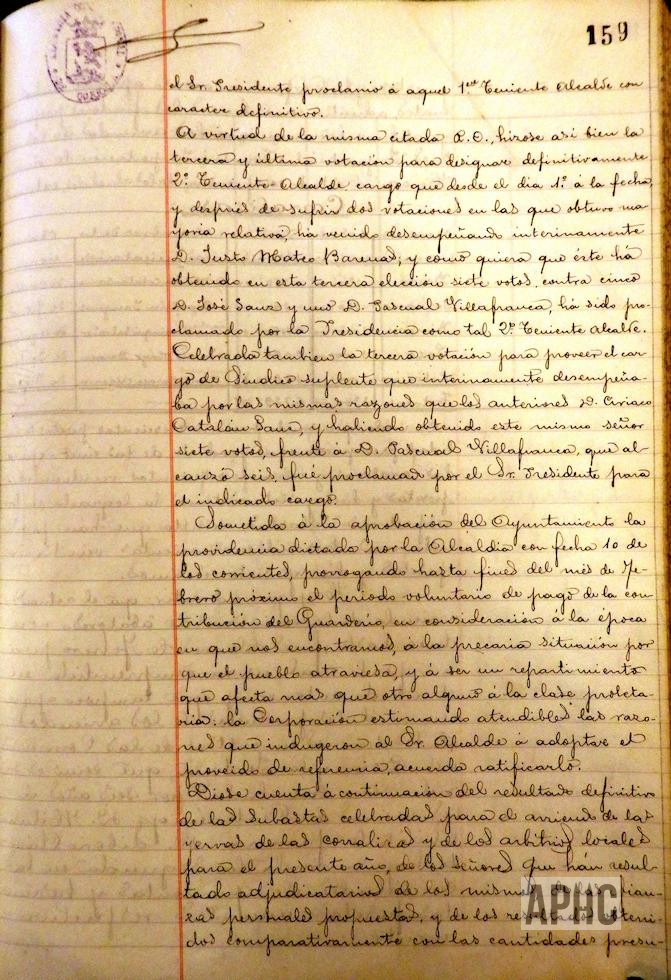 159
el Sr. Presidente proclamó á aquel 1er Teniente Alcalde con
caracter definitivo.
A virtud de la misma citada R.O., hízose así bien la
tercera y última votación para designar definitivamente
2º Teniente Alcalde cargo que desde el dia 1º á la fecha,
y después de sufrir dos votaciones en las que obtuvo ma-
yoría relativa, ha venido desempeñando interinamente
D. Justo Mateo Barenas; y como quiera que éste há
obtenido en esta tercera elección siete votos, contra cinco
D. José Sanz y uno D. Pascual Villafranca, há sido pro-
clamado por la Presidencia como tal 2º Teniente Alcalde.
Celebrada tambien la tercera votación para proveer el car-
go de Síndico suplente que interinamente desempeña-
ba por las mismas razones que los anteriores D. Ciriaco
Catalán Sanz, y habiendo obtenido este mismo señor
siete votos, frente á D. Pascual Villafranca, que al-
canzó seis, fué proclamado por el Sr. Presidente para
el indicado cargo.
Sometida á la aprobación del Ayuntamiento la
providencia dictada por la Alcaldía con fecha 10 de
los corrientes, prorrogando hasta fines del mes de Fe-
brero próximo el periodo voluntario de pago de la con-
tribución del Guarderío, en consideración á la época
en que nos encontramos, á la precaria situación por
que el pueblo atraviesa, y á ser un repartimiento
que afecta mas que otro alguno á la clase proleta-
ria: la Corporación estimando atendibles las razo-
nes que indugeron al Sr. Alcalde á adoptar el
proveido de referencia, acuerda ratificarlo.
Diose cuenta á continuación del resultado definitivo
de las subastas celebradas para el arriendo de las
yervas de las corralizas y de los arbitrios locales
para el presente año, de los señores que hán resul-
tado adjudicatarios de los mismos, de las fian-
zas personales propuestas, y de los resultados obteni-
dos comparativamente con las cantidades presu-
APHC